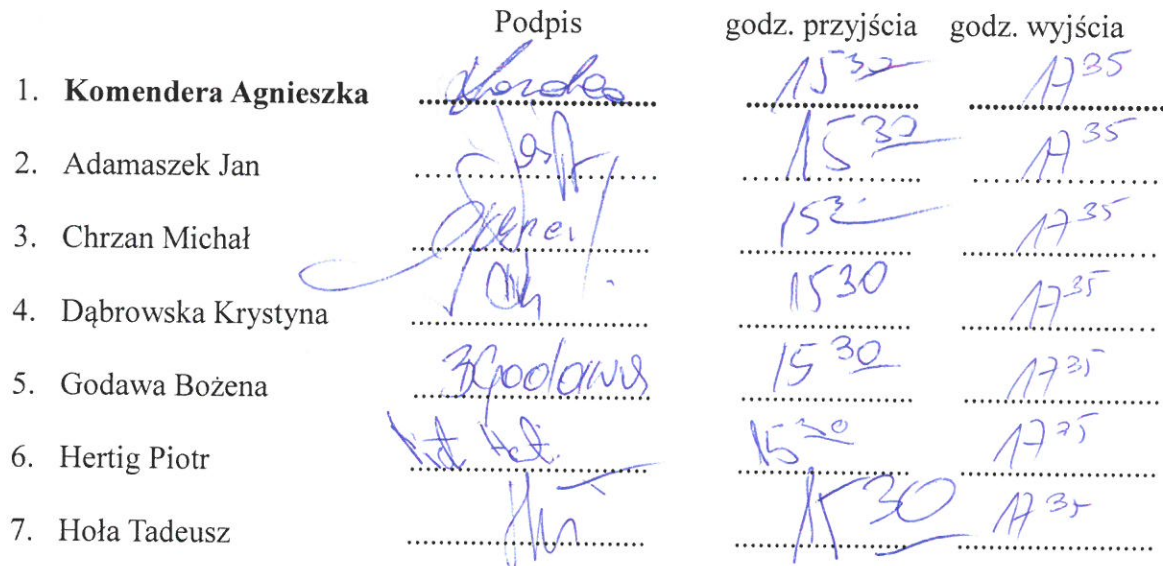 Podpis godz. przyjścia godz. wyjścia
1. Komendera Agnieszka 15 30 17 35
2. Adamaszek Jan 15 30 17 35
3. Chrzan Michał 15 17 35
4. Dąbrowska Krystyna 15 30 17 35
5. Godawa Bożena BGodawa 15 30 17 35
6. Hertig Piotr 15 30 17 35
7. Hoła Tadeusz 15 30 17 35